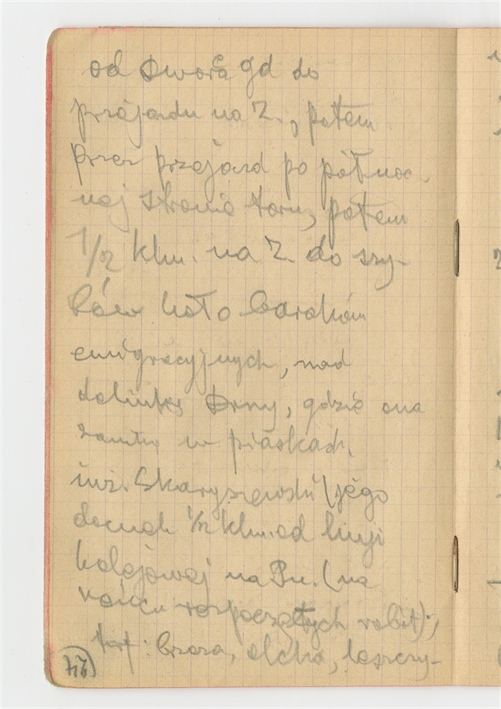 od dworca gd do
przejazdu na Z., potem
przez przejazd po północ
nej stronie toru, potem
1/2 klm. na Z. do szy-
bów koło baraków
emigracyjnych, nad
dolinką Drny, gdzie ona
w piaskach.
inż. Skaryszewski (jego
domek 1/2 klm. od linji
kolejowej na Pn. (na
końcu rozpoczętych robót);
torf: brzoza, olcha, leszczy-